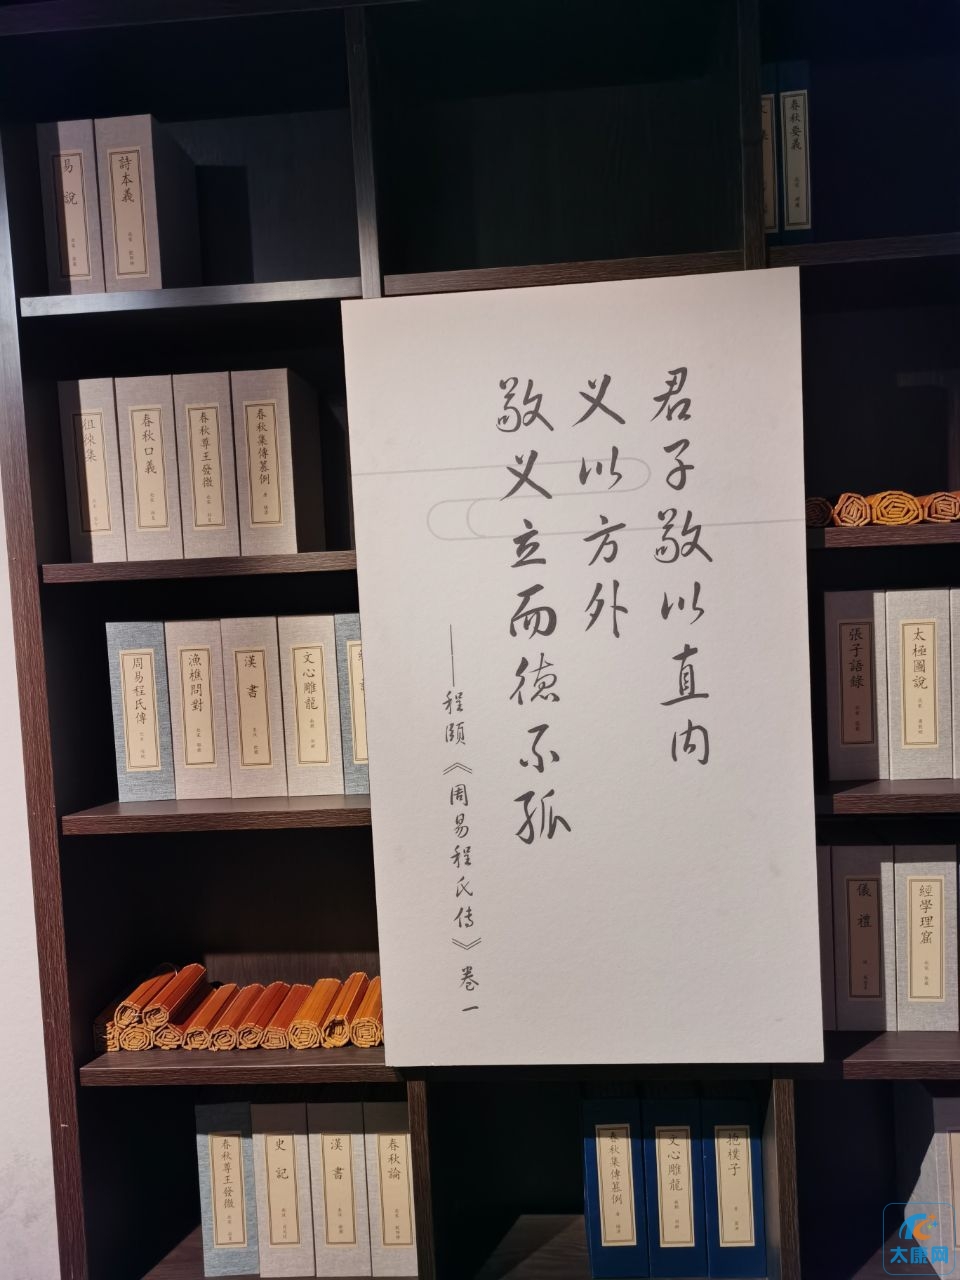 君子敬以直内
义以方外
敬义立而德不孤
——程颐《周易程氏传》卷一
易說
詩本義
春秋要義
徂徠集
春秋口義
春秋尊王發微
春秋集傳纂例
周易程氏傳
漁樵問對
漢書
文心雕龍
張子語錄
太極圖說
儀禮
經學理窟
春秋尊王發微
史記
漢書
春秋論
春秋集傳纂例
文心雕龍
抱樸子
太康网